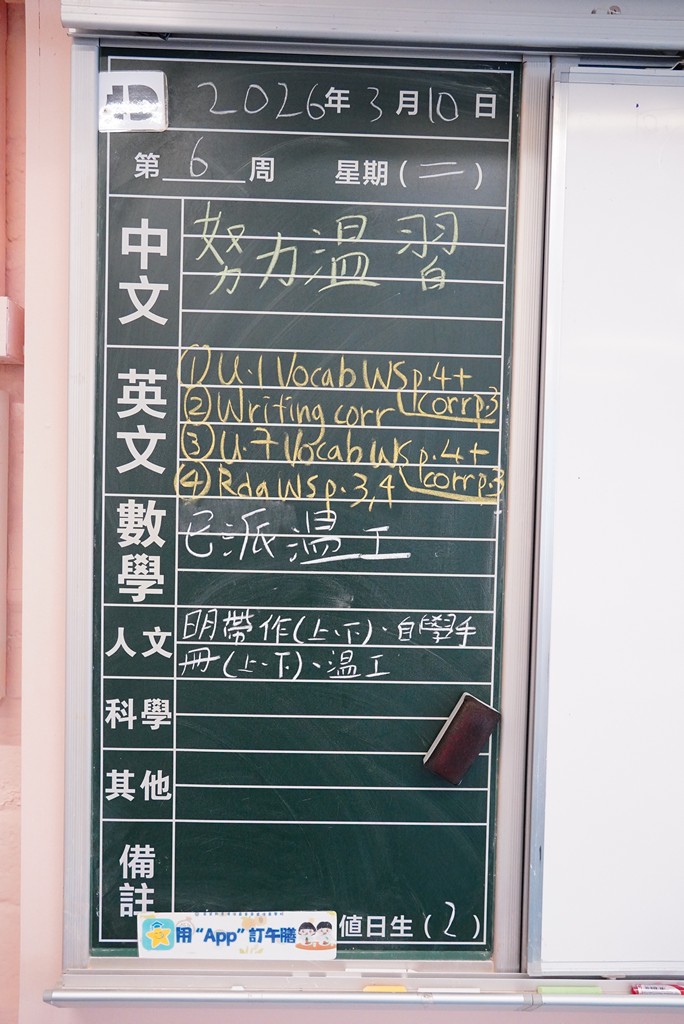 2026年3月10日
第6周 星期(二)
中文 努力溫習
英文 ① U.1 Vocab WS p.4+corr p.3
② Writing corr
③ U.7 Vocab WS p.4+corr p.3
④ Rda WS p.3,4
數學 已派溫工
人文 明帶作(上、下)、自學手
冊(上、下)、溫工
科學
其他
備註
用"App"訂午膳
值日生(2)